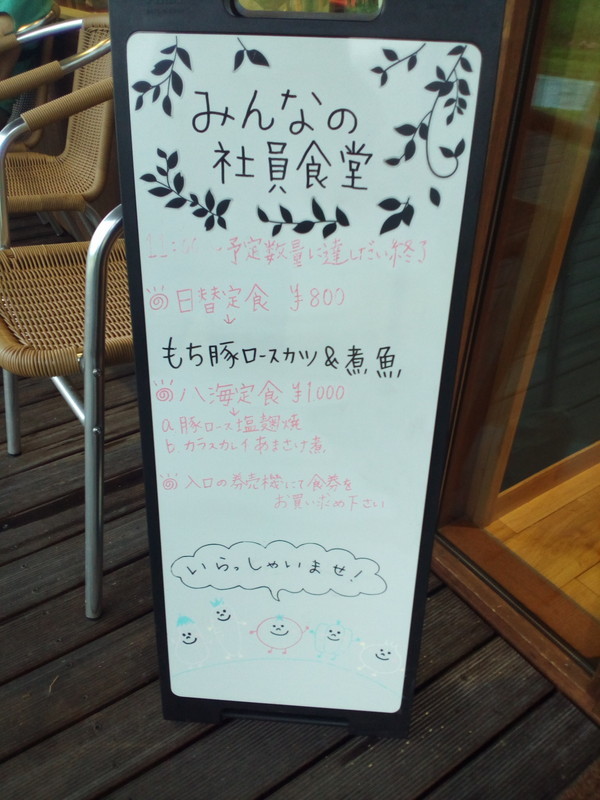 みんなの
社員食堂
11:00 ・予定数量に達しだい終了
日替定食 ¥800
↓
もち豚ロースカツ&煮魚
八海定食 ¥1000
↓
a.豚ロース塩麹焼
b.カラスカレイあまさけ煮
入口の券売機にて食券を
お買いだめ下さい
いらっしゃいませ!